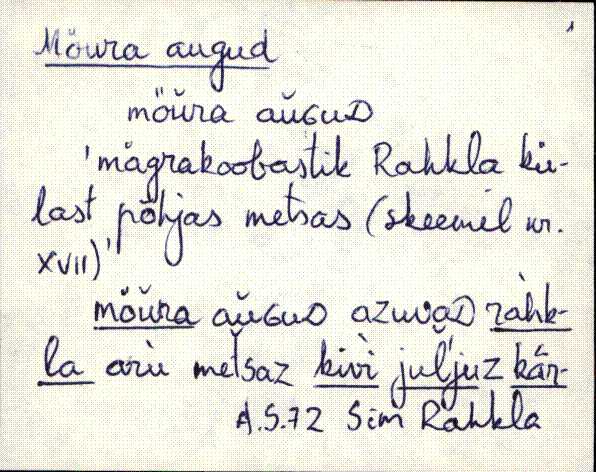 1
Mõura augud
mõŭra aŭGuD
'mägrakoobastik Rahkla kü-
last põhjas metsas (skeemil nr.
XVII)'
mõŭra aŭGuD azuvaD ràhk-
la arù metsaz kivì juĺjuz kär-
A.S.72 Sim Rahkla